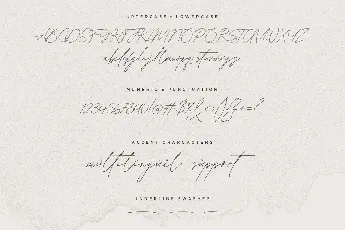 UPPERCASE & LOWERCASE
ABCDEFGHIJKLMNOPQRSTUVWXYZ
abcdefghijklmnopqrstuvwxyz
NUMERIC & PUNCTUATION
ACCENT CHARACTERS
multilingual support
UNDERLINE SWASHES